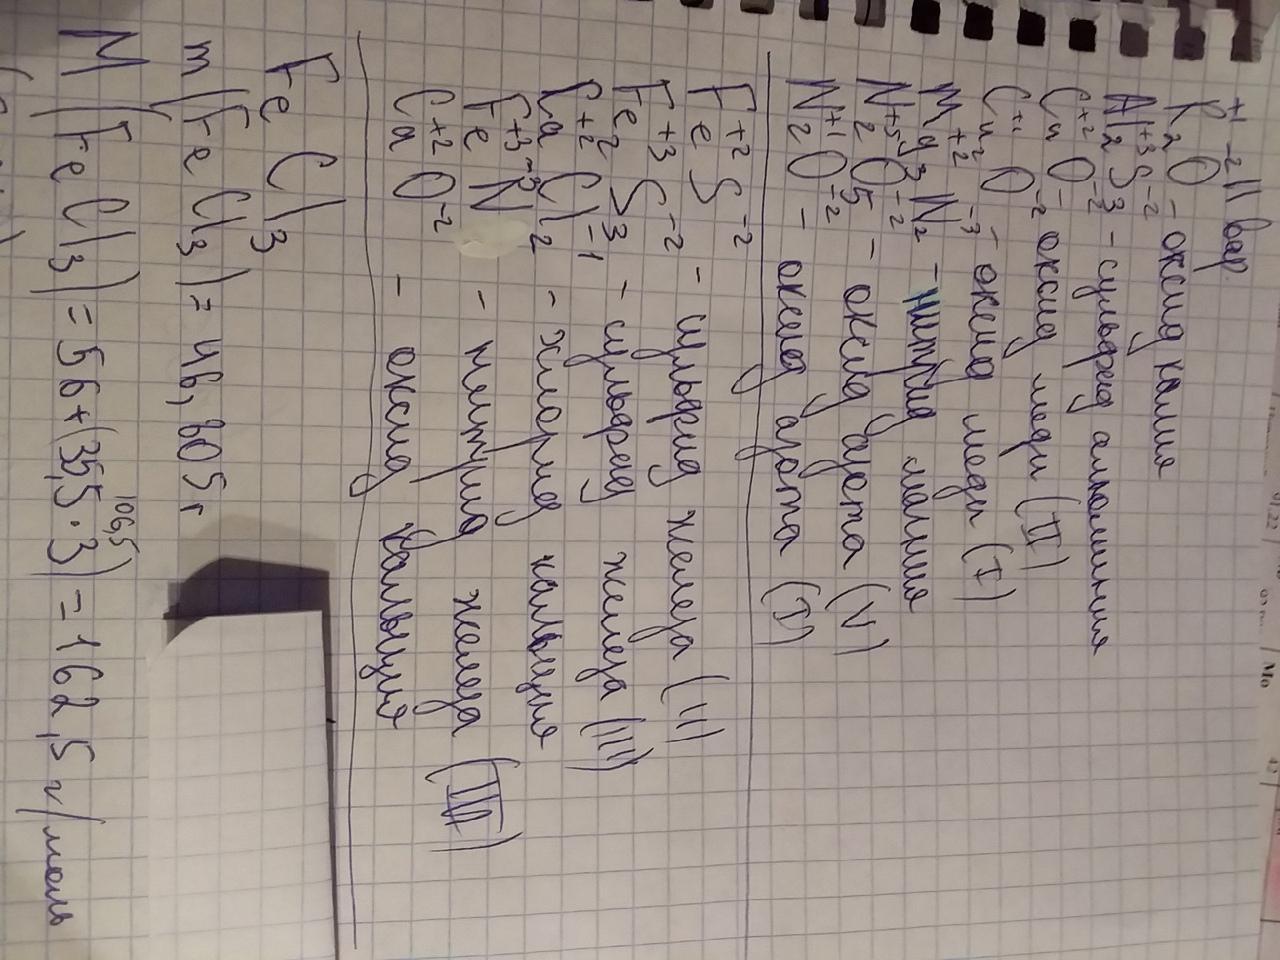 II вар.
K₂⁺¹O⁻² - оксид калия
Al₂⁺³S₃⁻² - сульфид алюминия
Cu⁺²O⁻² - оксид меди (II)
Cu₂⁺¹O⁻² - оксид меди (I)
Mg₃⁺²N₂⁻³ - нитрид магния
N₂⁺⁵O₅⁻² - оксид азота (V)
N₂⁺¹O⁻² - оксид азота (I)
Fe⁺²S⁻² - сульфид железа (II)
Fe₂⁺³S₃⁻² - сульфид железа (III)
Ca⁺²Cl₂⁻¹ - хлорид кальция
Fe⁺³N⁻³ - нитрид железа (III)
Ca⁺²O⁻² - оксид кальция
FeCl₃
m(FeCl₃) = 46,805 г
106,5
M(FeCl₃) = 56+(35,5·3) = 162,5 г/моль